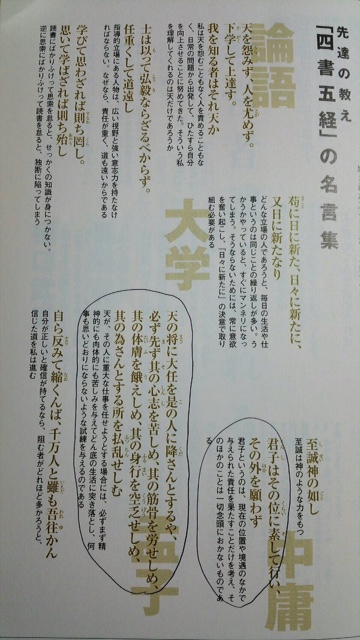 先達の教え
「四書五経」の名言集
論語
天を怨みず、人を尤めず。
下学して上達す。
我を知る者はそれ天か
私は天を怨むこともなく人を責めることもなく、日常の問題から出発して、ひたすら自分を向上させることに努めてきた。そういう私を理解してくれるのは天だけであろうか
士は以って弘毅ならざるべからず。
任重くして道遠し
指導的立場にある人物は、広い視野と強い意志力を持たなければならない。なぜなら、責任が重く、道も遠いからである
学びて思わざれば則ち罔し。
思いて学ばざれば則ち殆し
読書にばかりふけって思索を怠ると、せっかくの知識が身につかない。逆に思索にばかりふけって読書を怠ると、独断に陥ってしまう
大学
苟に日に新た、日々に新たに、
又日に新たなり
どんな立場の人であろうと、毎日の生活や仕事というのは同じことの繰り返しが多い。うかうかやっていると、すぐにマンネリになってしまう。そうならないためには、常に意欲を奮い起こし、「日々に新た」の決意で取り組む必要がある
孟子
天の将に大任を是の人に降さんとするや、
必ず先ず其の心志を苦しめ、其の筋骨を労せしめ、
其の体膚を餓えしめ、其の身行を空乏せしめ、
其の為さんとする所を払乱せしむ
天が、その人に重大な仕事を任せようとする場合には、必ずまず精神的にも肉体的にも苦しみを与えてどん底の生活に突き落とし、何事も思いどおりにならないような試練を与えるのである
自ら反みて縮くんば、千万人と雖も吾往かん
自分が正しいと確信が持てるなら、阻む者がどれほど多かろうと、信じた道を私は進む
中庸
至誠神の如し
至誠は神のような力をもつ
君子はその位に素して行い、
その外を願わず
君子というのは、現在の位置や境遇のなかで与えられた責任を果たすことだけを考え、そのほかのことは一切念頭におかないものである